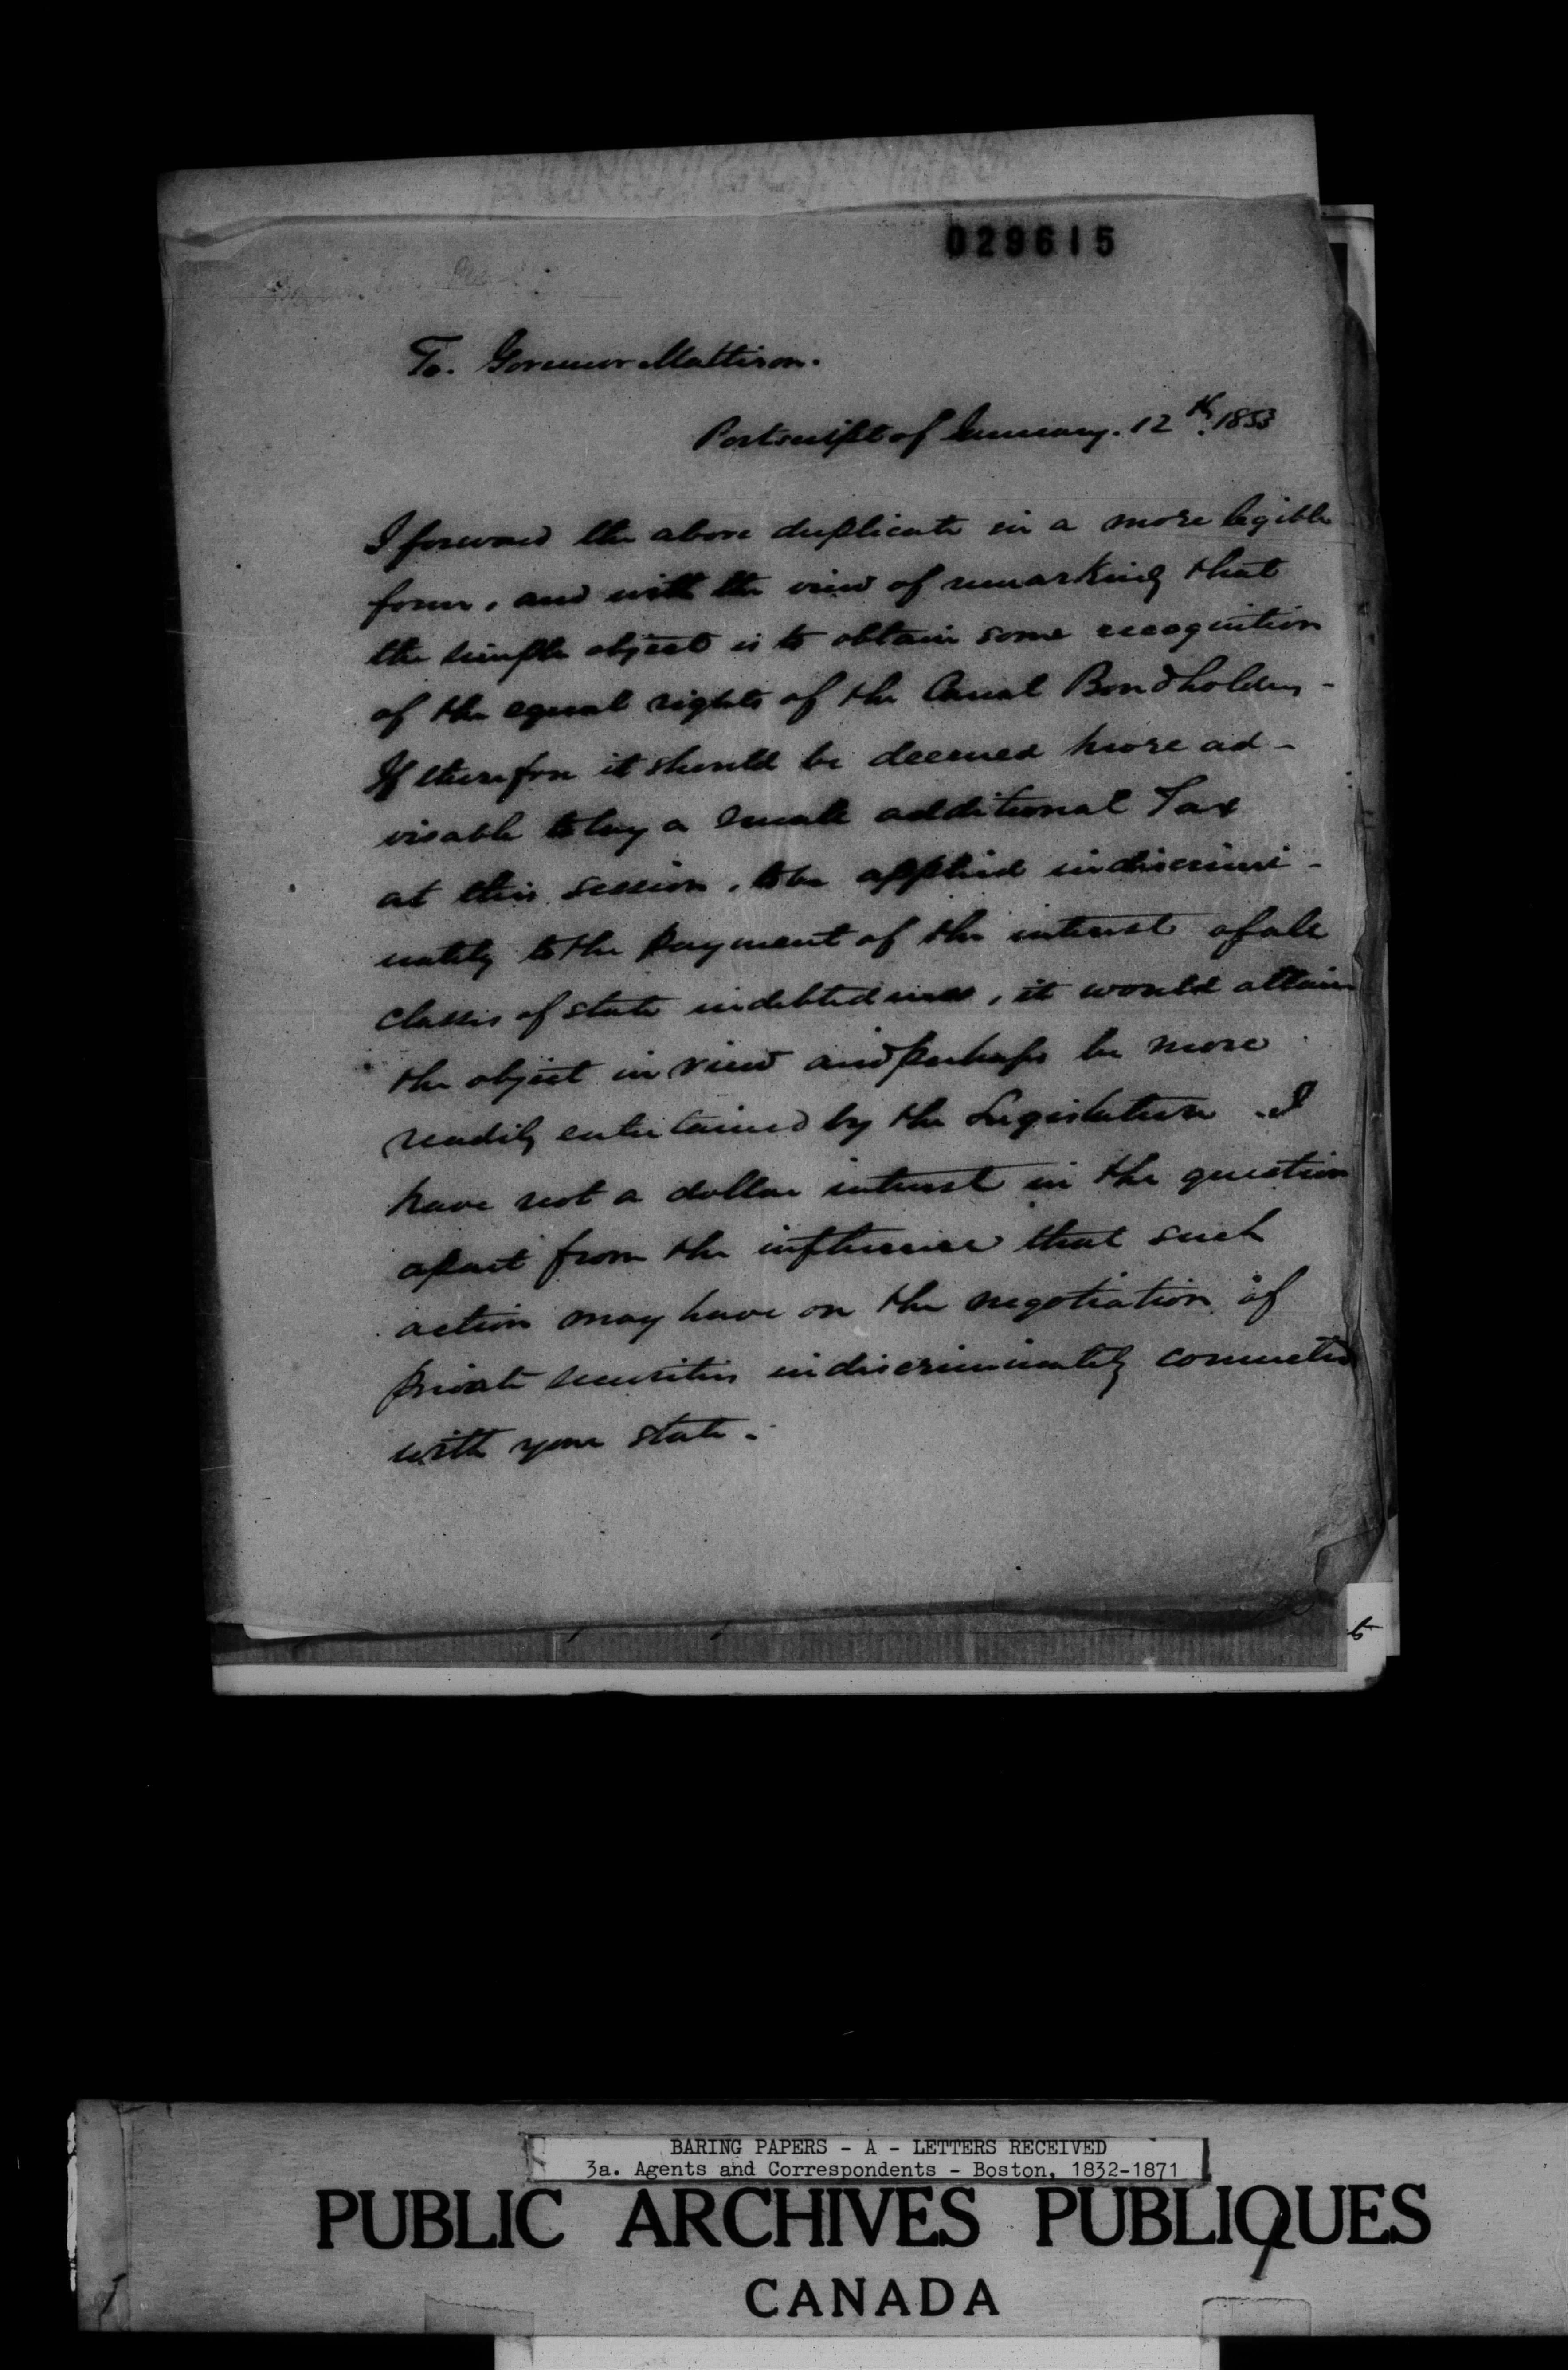 029615
To. Governor Mattison.
Postscript of January. 12th. 1853
I forward the above duplicate in a more legible
form, and with the view of remarking that
the simple object is to obtain some recognition
of the equal rights of the Canal Bondholders -
If therefore it should be deemed more ad-
visable to lay a small additional Tax
at this session, to be applied indiscrimi-
nately to the payment of the interest of all
classes of state indebtedness, it would attain
the object in view and perhaps be more
readily entertained by the Legislature. I
have not a dollar interest in the question
apart from the influence that such
action may have on the negotiation of
private securities indiscriminately connected
with your state.
BARING PAPERS - A - LETTERS RECEIVED
3a. Agents and Correspondents - Boston, 1832-1871
PUBLIC ARCHIVES PUBLIQUES
CANADA